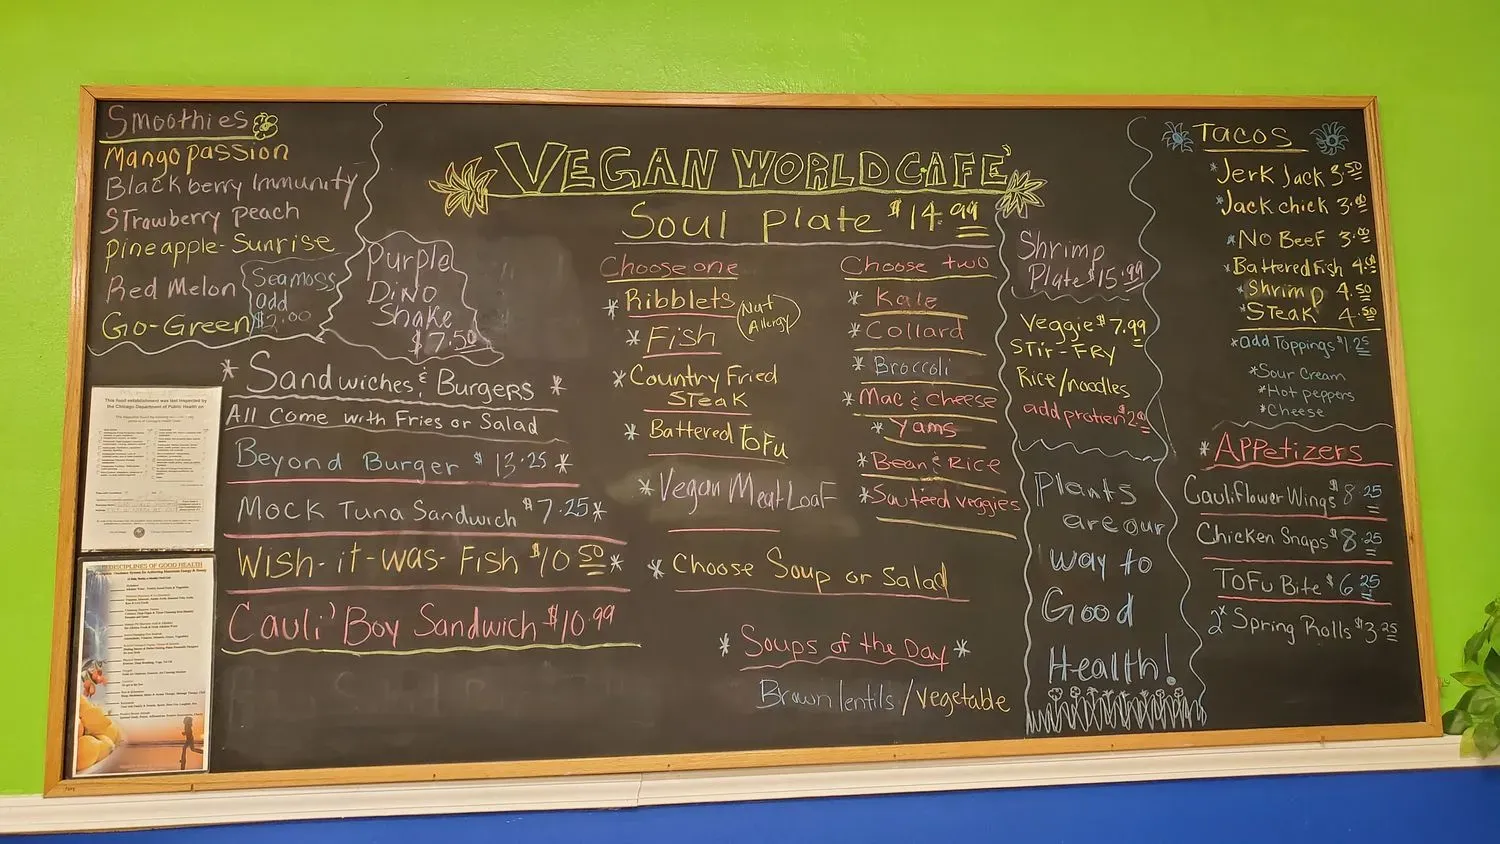 Smoothies
Mango passion
Blackberry Immunity
Strawberry Peach
Pineapple-Sunrise
Red Melon
Go-Green
Seamoss
add
$2.00
Purple
Dino
Shake
$7.50
VEGAN WORLD CAFE'
Soul Plate $14.99
Choose one
*Ribblets
(Nut
Allergy)
*Fish
*Country Fried
Steak
*Battered Tofu
*Vegan Meat Loaf
Choose two
*Kale
*Collard
*Broccoli
*Mac & Cheese
*Yams
*Bean & Rice
*Sauteed veggies
*Choose Soup or Salad
*Soups of the Day*
Brown lentils/vegetable
*Sandwiches & Burgers*
All Come with Fries or Salad
Beyond Burger $13.25*
Mock Tuna Sandwich $7.25*
Wish-it-was-Fish $10.50*
Cauli' Boy Sandwich $10.99
Shrimp
Plate $15.99
Veggie $7.99
Stir-Fry
Rice/noodles
add protien $2.99
Plants
are our
way to
Good
Health!
Tacos
*Jerk Jack 3.50
*Jack chick 3.00
*No Beef 3.00
*Battered Fish 4.00
*Shrimp 4.50
*Steak 4.50
*add Toppings $1.25
*Sour Cream
*Hot peppers
*Cheese
*Appetizers
Cauliflower Wings $8.25
Chicken Snaps $8.25
Tofu Bite $6.25
2x Spring Rolls $3.25
This food establishment was last inspected by
the Chicago Department of Public Health on
DISCIPLINES OF GOOD HEALTH